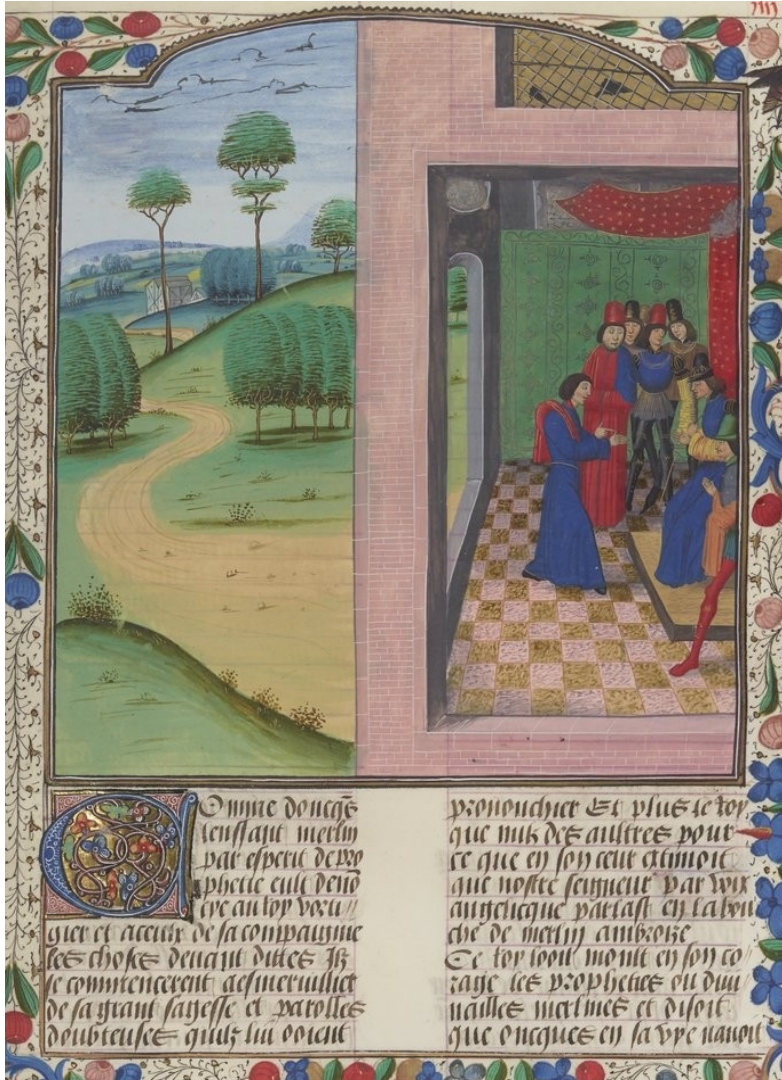 iiii
Comme doncqs
lenffant merlin
par esperit de pro
phetie eult deno
cye au roy vorti
gier et a ceulx de sa compaignie
les choses deuant dittes Ilz
se commencerent a esmerueillier
de sa grant sagesse et parolles
doubteuses quilz lui ooient
pronouchier Et plus le roy
que nulz des aultres pour
ce que en son ceur extimoit
que nostre seigneur par voix
angelicque parlast en la bou
che de merlin ambroize
Ce roy looit moult en son co
rage les propheties ou diui
nailles merlines et disoit
que oncques en sa vye nauoit